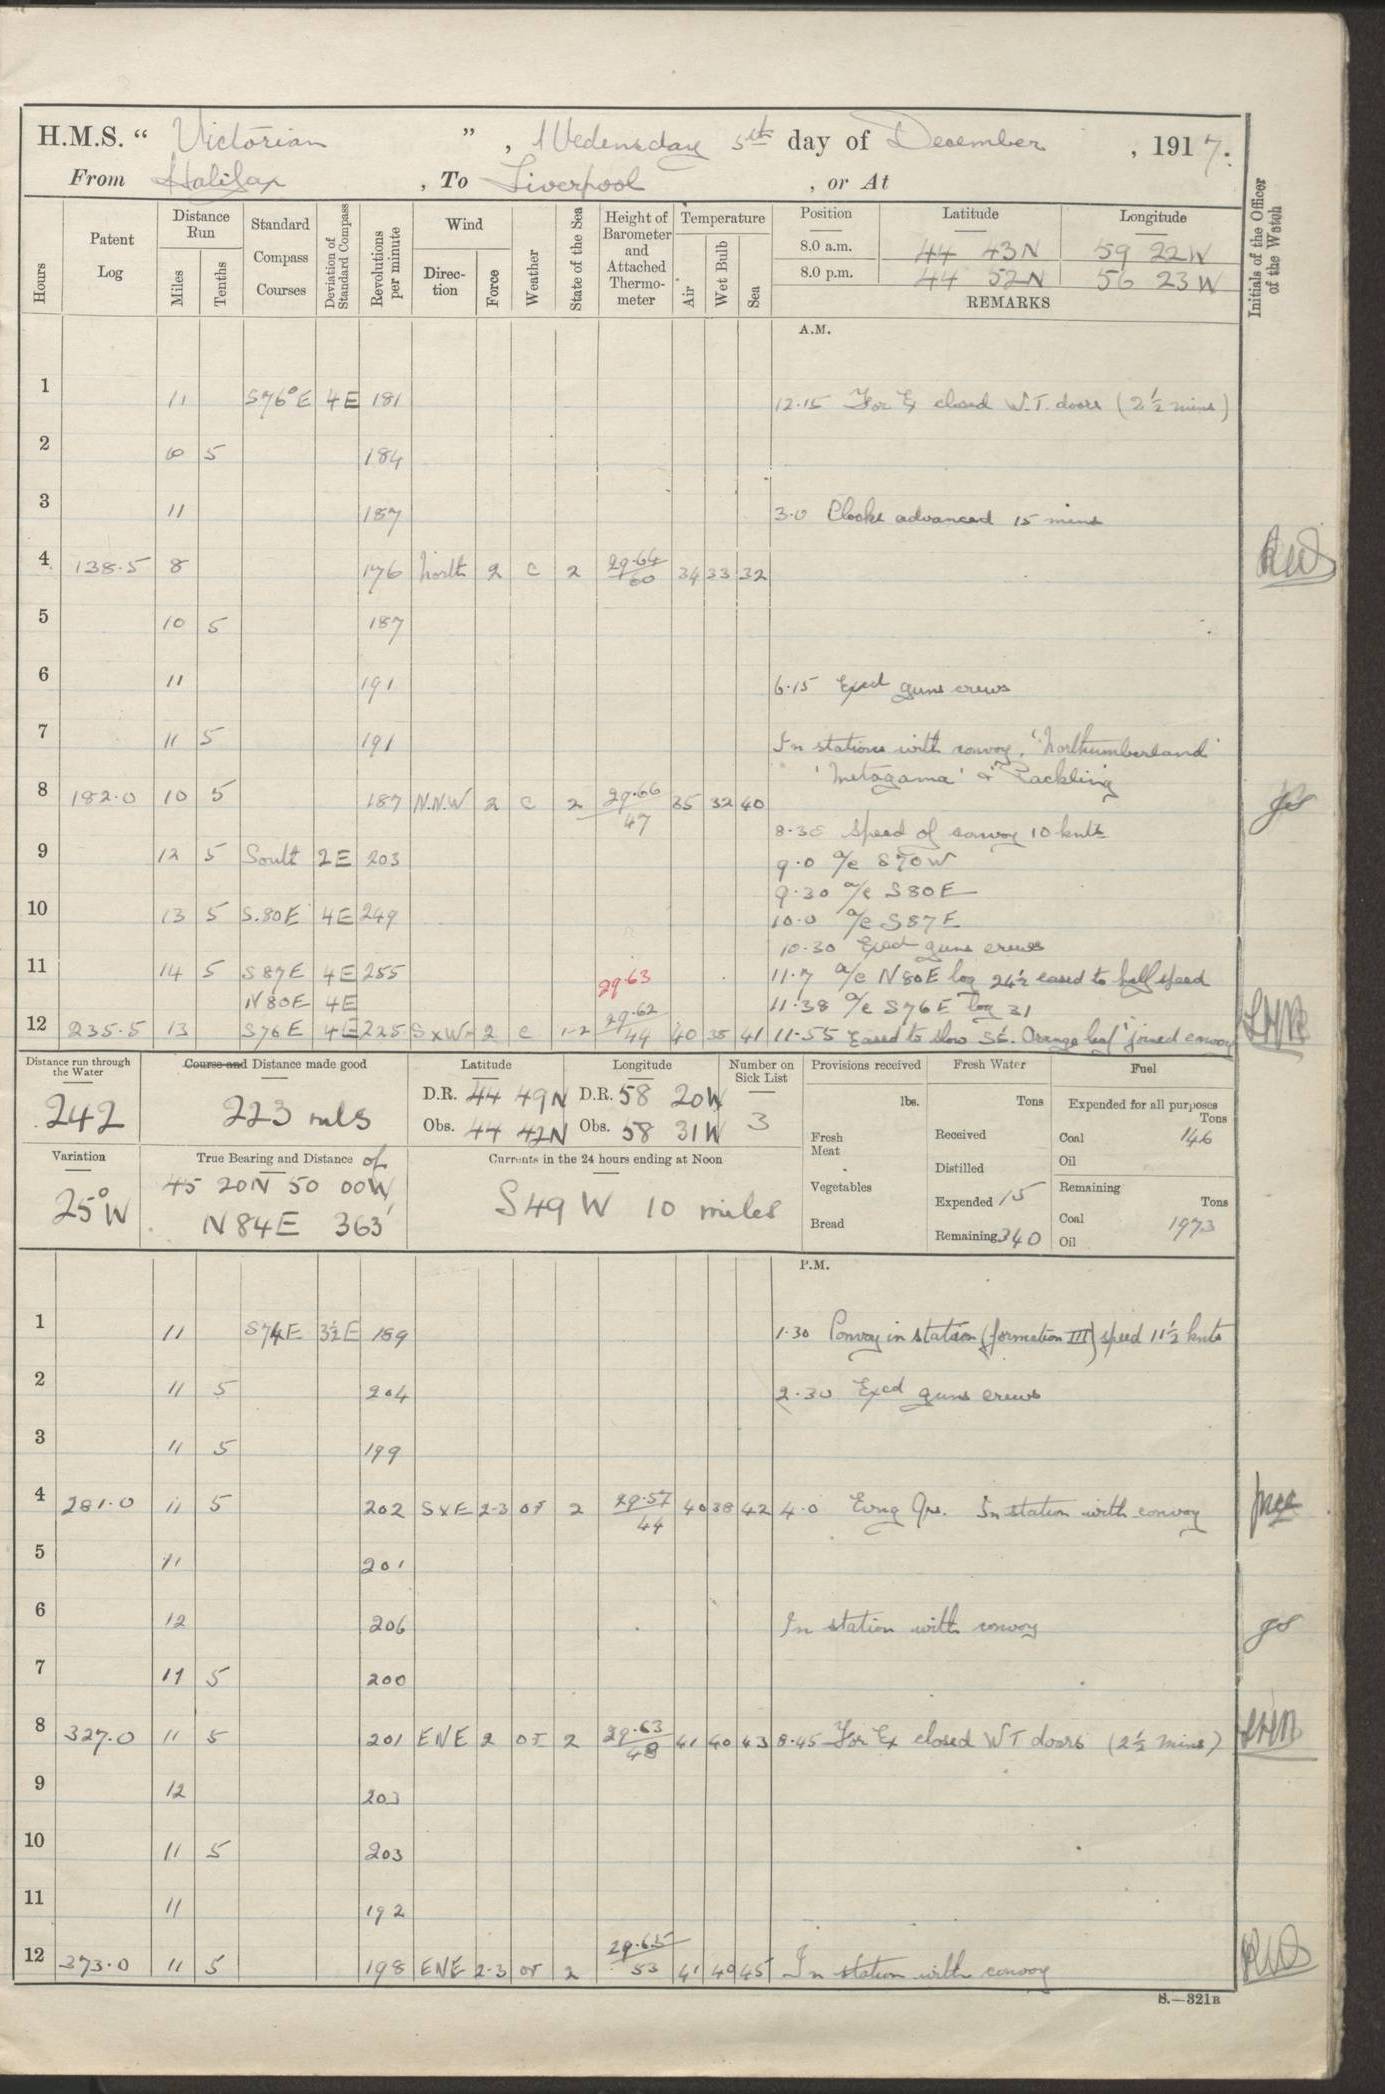 H.M.S. “ Victorian ” , Wednesday 5th day of December , 1917.
From Halifax , To Liverpool , or At
Hours Patent Log Distance Run Miles Tenths Standard Compass Courses Deviation of Standard Compass Revolutions per minute Wind Direction Force Weather State of the Sea Height of Barometer and Attached Thermometer Temperature Air Wet Bulb Sea Position Latitude Longitude Initials of the Officer of the Watch
8.0 a.m. 44 43N 59 22W
8.0 p.m. 44 52N 56 23W
REMARKS
A.M.
1 11 S76°E 4E 181 12.15 For Ex closed W.T. doors (2½ mins)
2 10 5 184
3 11 187 3.0 Clocks advanced 15 mins
4 138.5 8 176 North 2 C 2 29.64/60 34 33 32 RWS
5 10 5 187
6 11 191 6.15 Exed guns crews
7 11 5 191 In stations with convoy, 'Northumberland'
'Metagama' &
8 182.0 10 5 187 N.N.W 2 C 2 29.66/47 35 32 40
8.30 Speed of convoy 10 knts
9 12 5 South 2E 203 9.0 a/c S70W
9.30 a/c S80E
10 13 5 S.80E 4E 249 10.0 a/c S87E
10.30 Exed guns crews
11 14 5 S87E 4E 255 29.63 11.7 a/c N80E log 24½ eased to half speed
N80E 4E 11.38 a/c S76E log 31
12 235.5 13 S76E 4E 225 SxW 2 C 1-2 29.62/44 40 35 41 11.55 Eased to slow SS. Orange leaf joined convoy LHB
Distance run through the Water Course and Distance made good Latitude Longitude Number on Sick List Provisions received Fresh Water Fuel
242 223 mls D.R. 44 49N D.R. 58 20W 3 lbs. Tons Expended for all purposes Tons
Obs. 44 42N Obs. 58 31W Fresh Meat Received Coal 146
Oil
Variation True Bearing and Distance of Currents in the 24 hours ending at Noon Distilled
45 20N 50 00W Vegetables Expended 15 Remaining Tons
25°W N84E 363' S49W 10 miles Bread Remaining 340 Coal 1973
Oil
P.M.
1 11 S74E 3½E 189 1.30 Convoy in station (formation III) speed 11½ knts
2 11 5 204 2.30 Exed guns crews
3 11 5 199
4 281.0 11 5 202 SxE 2-3 OF 2 29.57/44 40 38 42 4.0 Evng Qrs. In station with convoy
5 11 201
6 12 206 In station with convoy
7 11 5 200
8 327.0 11 5 201 ENE 2 OF 2 29.63/48 41 40 43 8.45 For Ex closed WT doors (2½ mins) LHB
9 12 203
10 11 5 203
11 11 192
12 373.0 11 5 198 ENE 2-3 OF 2 29.65/53 41 40 45 In station with convoy RWS
S.—321B